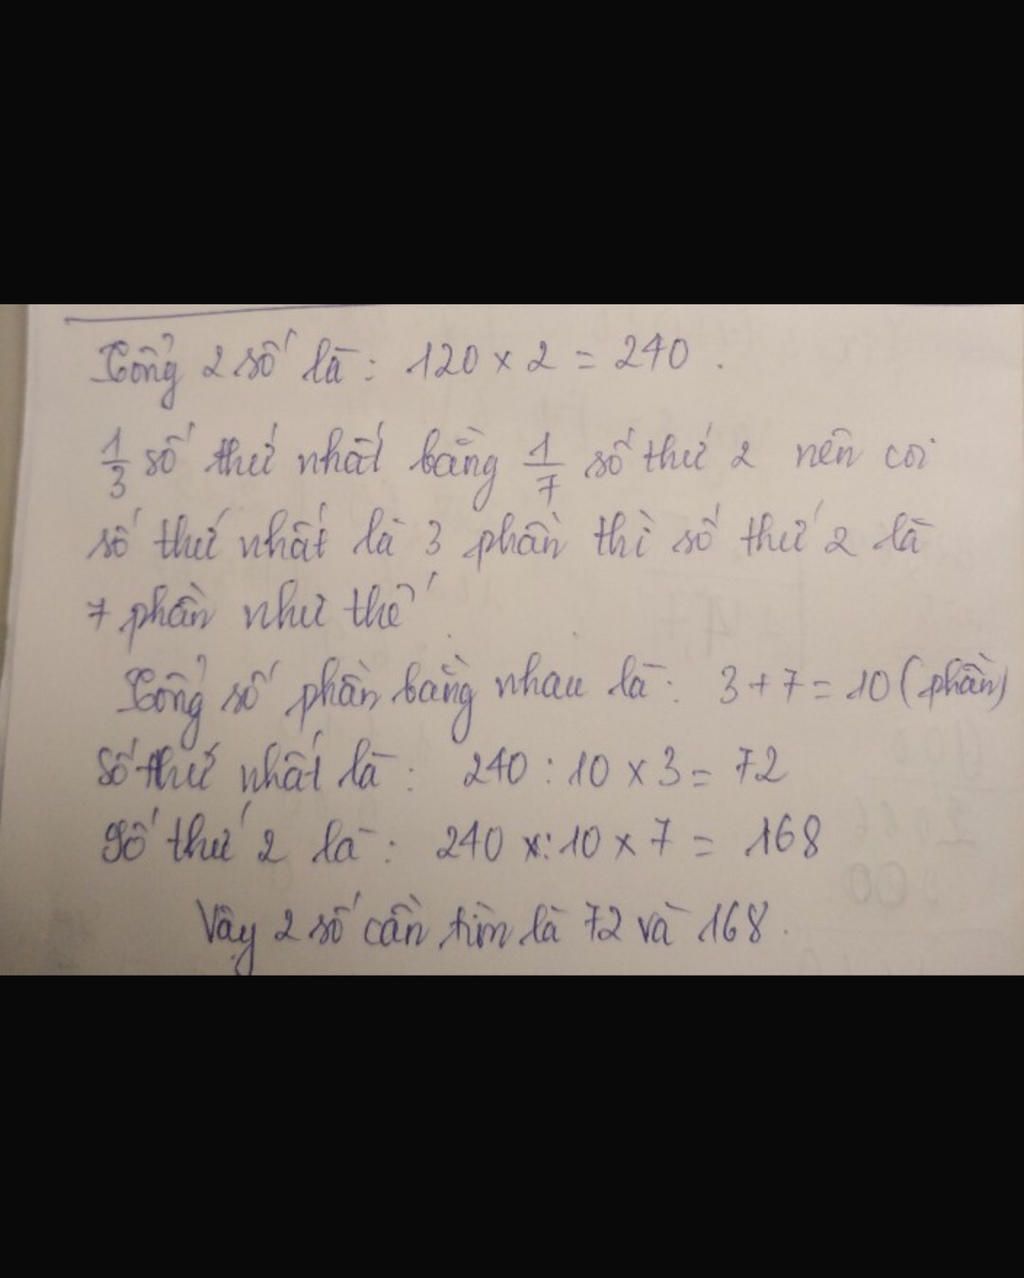 Tổng 2 số là: 120 x 2 = 240.
1/3 số thứ nhất bằng 1/7 số thứ 2 nên coi
số thứ nhất là 3 phần thì số thứ 2 là
7 phần như thế
Tổng số phần bằng nhau là: 3 + 7 = 10 (phần)
Số thứ nhất là: 240 : 10 x 3 = 72
Số thứ 2 là: 240 x: 10 x 7 = 168
Vậy 2 số cần tìm là 72 và 168.